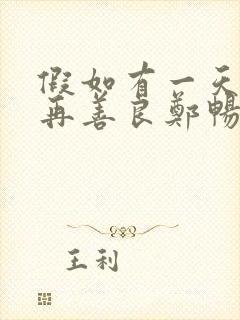 假如有一天
再善良鄭暢
王利